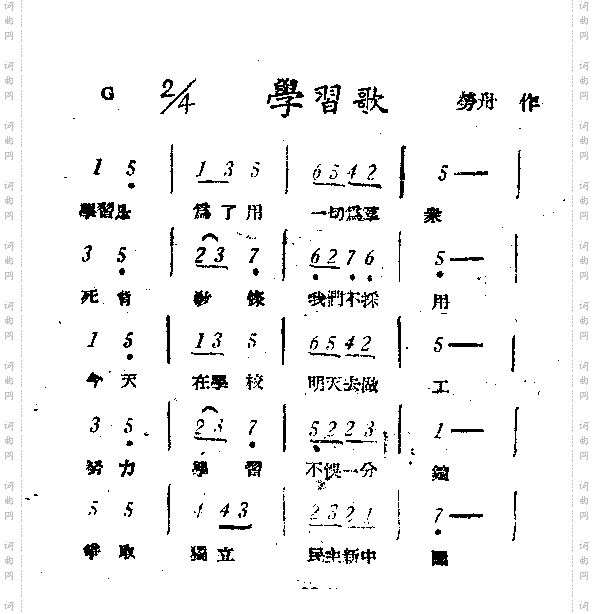 G 2/4 學習歌 勞舟 作
1 5 | 1 3 5 | 6 5 4 2 | 5 — |
學習是 為了用 一切為羣 衆
3 5 | 2 3 7 | 6 2 7 6 | 5 — |
死背 教條 我們不採 用
1 5 | 1 3 5 | 6 5 4 2 | 5 — |
今天 在學校 明天去做 工
3 5 | 2 3 7 | 5 2 2 3 | 1 — |
努力 學習 不悞一分 鐘
5 5 | 4 4 3 | 2 3 2 1 | 7 — |
爭取 獨立 民主新中 國
词曲网